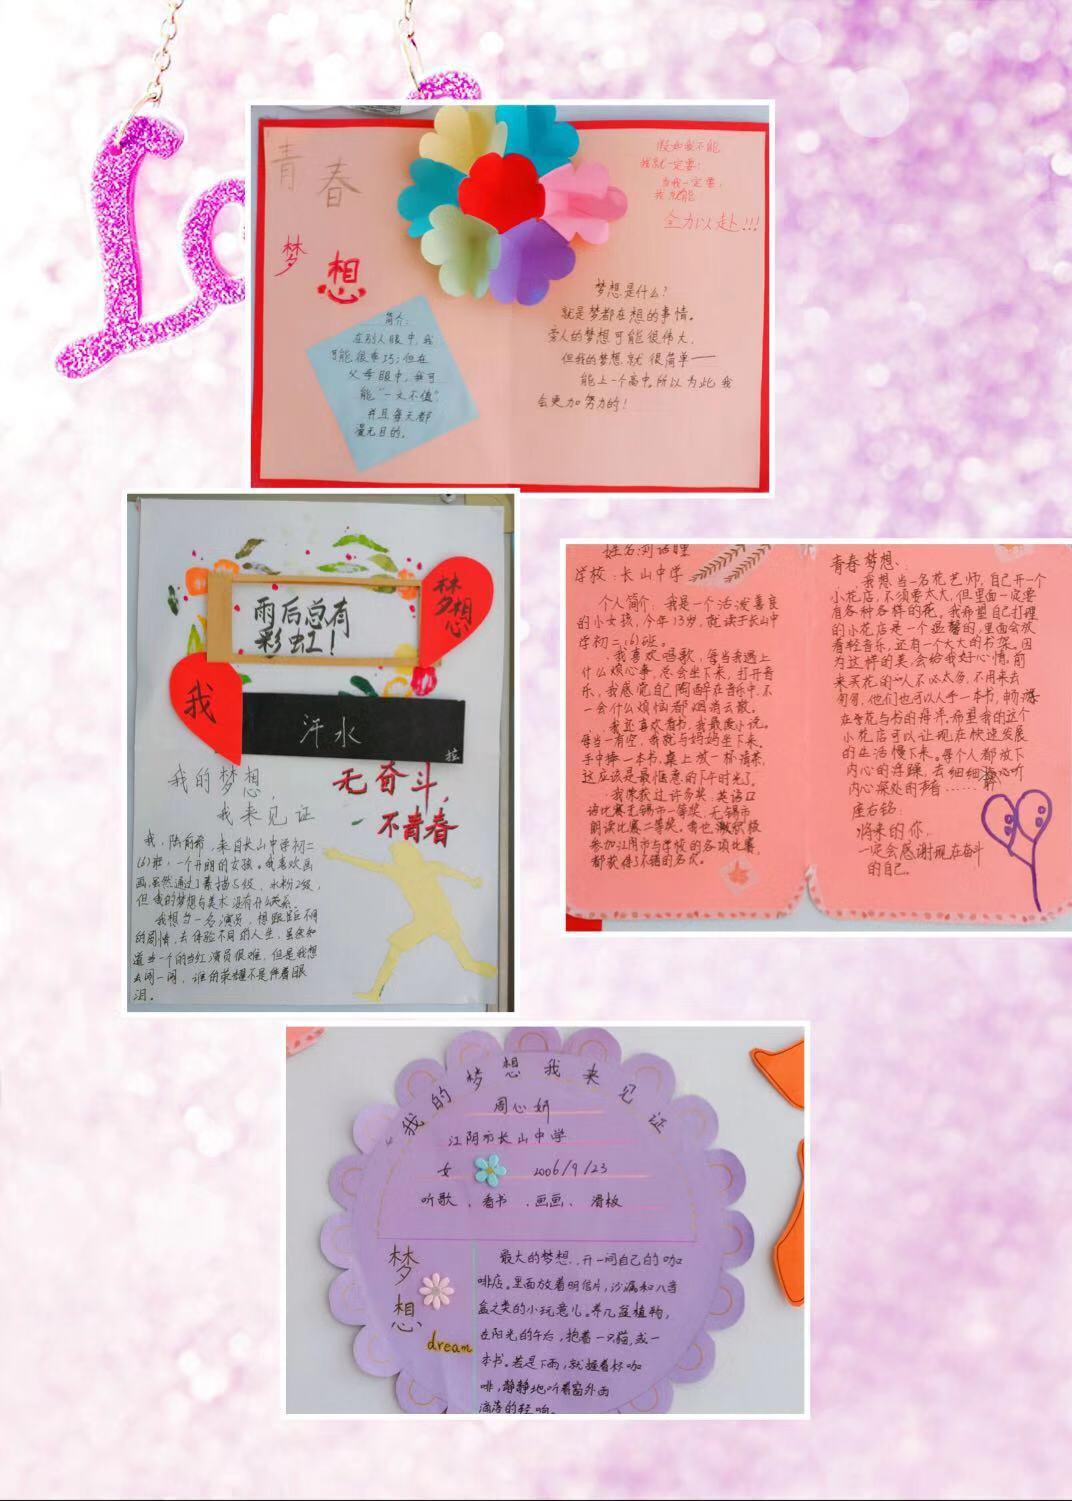 青春
梦想
简介:
在别人眼中,我
可能很乖巧;但在
父母眼中,我可
能“一文不值”
并且每天都
漫无目的。
假如我不能,
我就一定要;
当我一定要,
我就能
全力以赴!!!
梦想是什么?
就是梦都在想的事情。
旁人的梦想可能很伟大,
但我的梦想就很简单——
能上一个高中。所以为此我
会更加努力的!
雨后总有
彩虹!
梦想
我
汗水
我的梦想,
我来见证
无奋斗,
不青春
我,陆前希,来自长山中学初二
(6)班,一个开朗的女孩。我喜欢画
画,虽然通过了素描5级、水粉2级,
但我的梦想与美术没有什么关系。
我想当一名演员,想跟踪不同
的剧情,去体验不同的人生,虽然知
道当一个的当红演员很难,但是我想
去闯一闯,谁的荣耀不是伴着眼
泪。
学校:长山中学
个人简介:我是一个活泼善良
的小女孩,今年13岁,就读于长山中
学初二(6)班。
我喜欢唱歌,每当我遇上
什么烦心事,总会坐下来,打开音
乐,我感觉自己陶醉在音乐中,不
一会什么烦恼都烟消云散。
我还喜欢看书,我最爱小说。
每当一有空,我就与妈妈坐下来,
手中捧一本书,桌上放一杯清茶,
这应该是最惬意的下午时光了。
我荣获过许多奖,英语口
语比赛无锡市一等奖,无锡市
朗读比赛二等奖。我也积极
参加江阴市与学校的各项比赛,
都获得了不错的名次。
青春梦想:
我想当一名花艺师,自己开一个
小花店,不须要太大,但里面一定要
有各种各样的花,我希望自己打理
的小花店是一个温馨的,里面会放
着轻音乐,还有一个大大的书架。因
为这样的美,会给我好心情,前
来买花的人不必太急,不用来去
匆匆,他们也可以人手一本书,畅游
在花与书的海洋,希望我的这个
小花店可以让现在快速发展
的生活慢下来。每个人都放下
内心的浮躁,去细细聆听
内心深处的声音……
座右铭:
将来的你,
一定会感谢现在奋斗
的自己。
我的梦想我来见证
周心妍
江阴市长山中学
女 2006/9/23
听歌、看书、画画、滑板
梦想
dream
最大的梦想,开一间自己的咖
啡店。里面放着明信片,沙漏和八音
盒之类的小玩意儿。养几盆植物,
在阳光的午后,抱着一只猫,或一
本书。若是下雨,就握着杯咖
啡,静静地听着窗外雨
滴落的轻响。